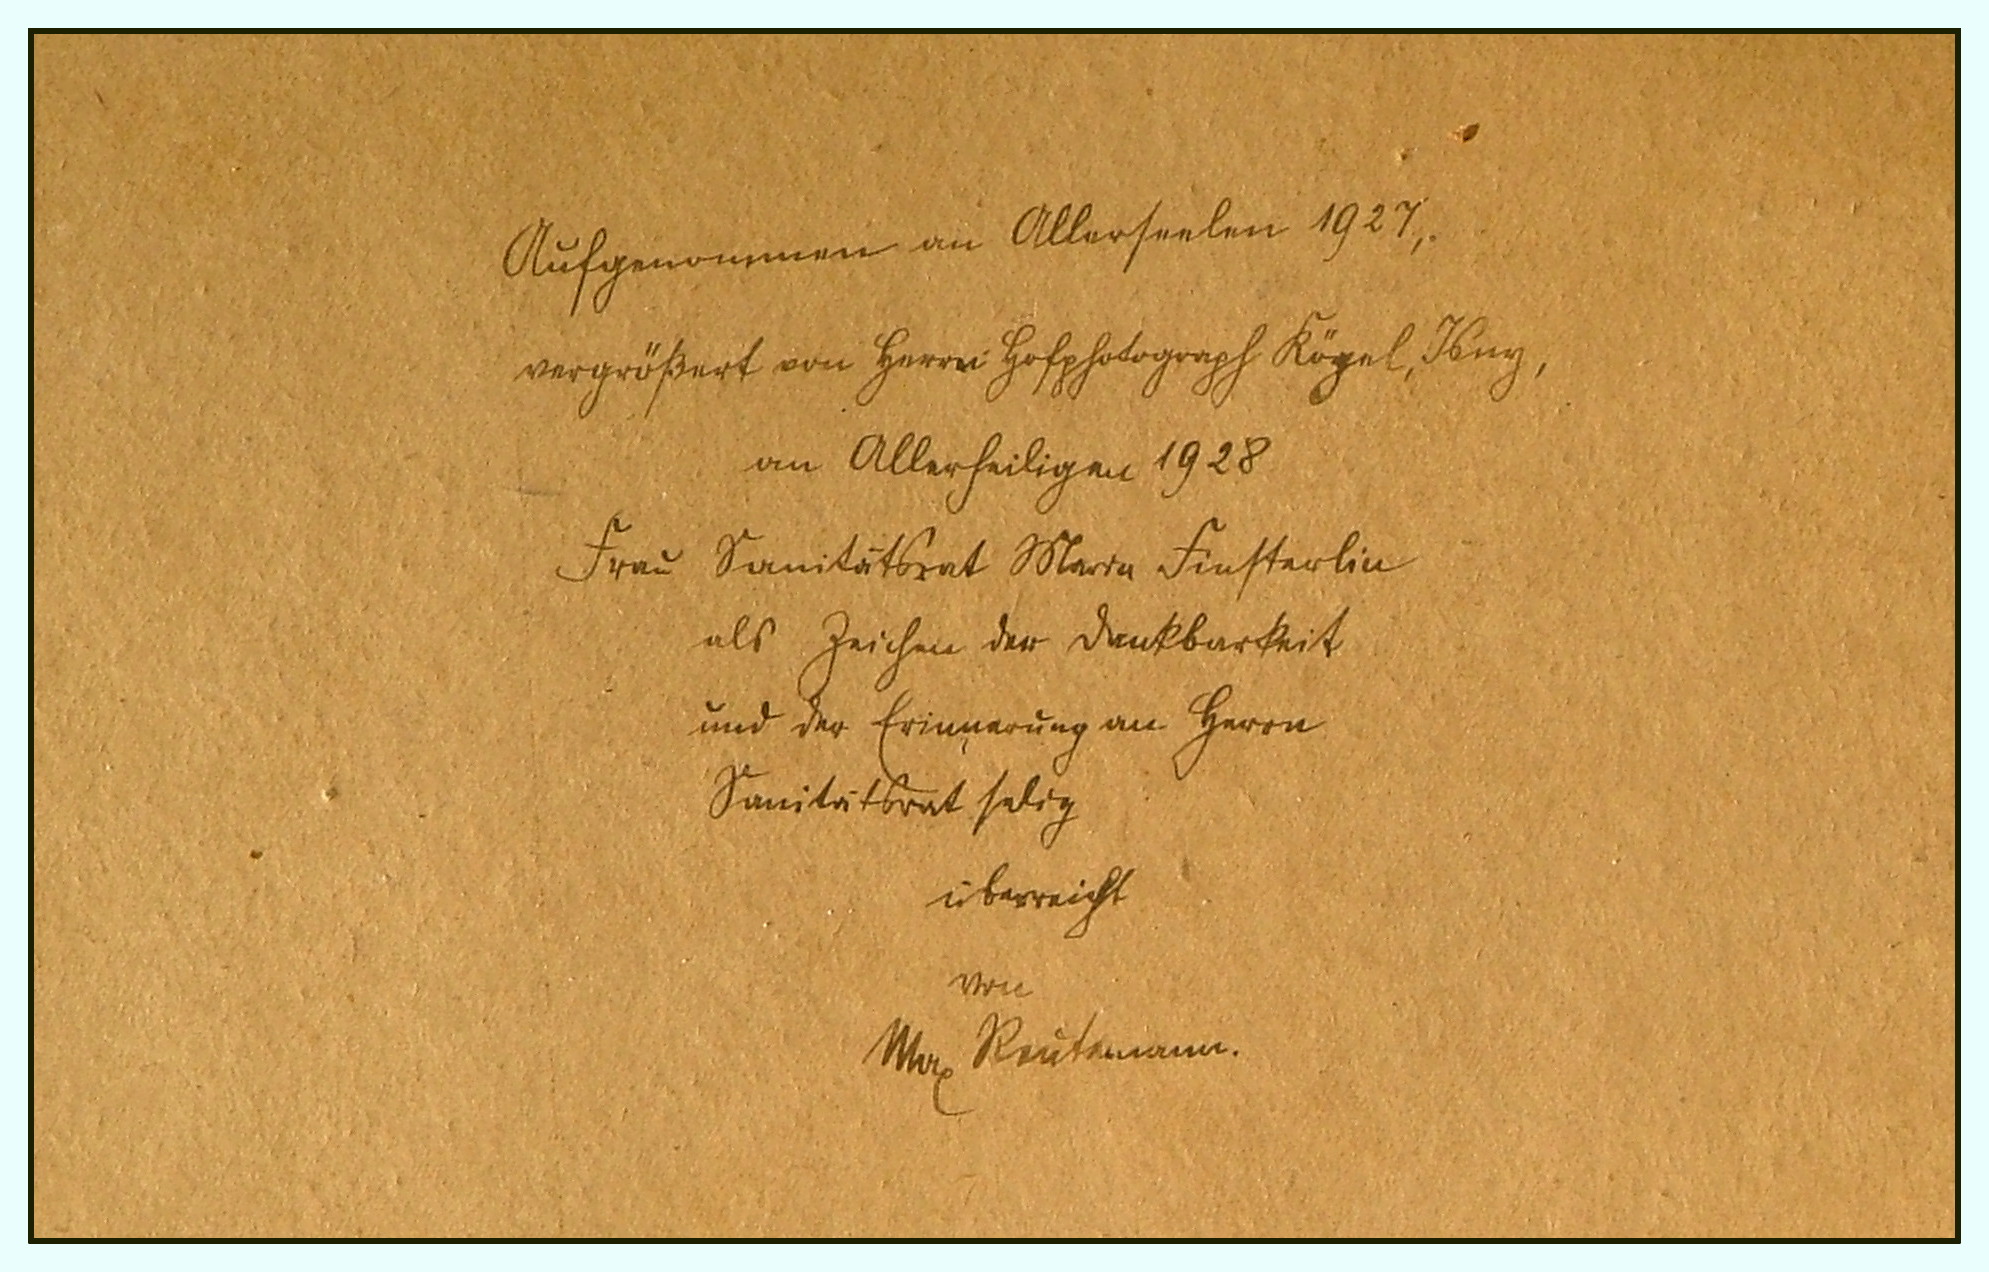 Aufgenommen an Allerseelen 1927,.
vergrößert von Herrn Hofphotograph Kögel, Isny,
an Allerheiligen 1928
Frau Sanitätsrat Maria Finsterlin
als Zeichen der Dankbarkeit
und der Erinnerung an Herrn
Sanitätsrat selig
überreicht
von
Max Reutemann.